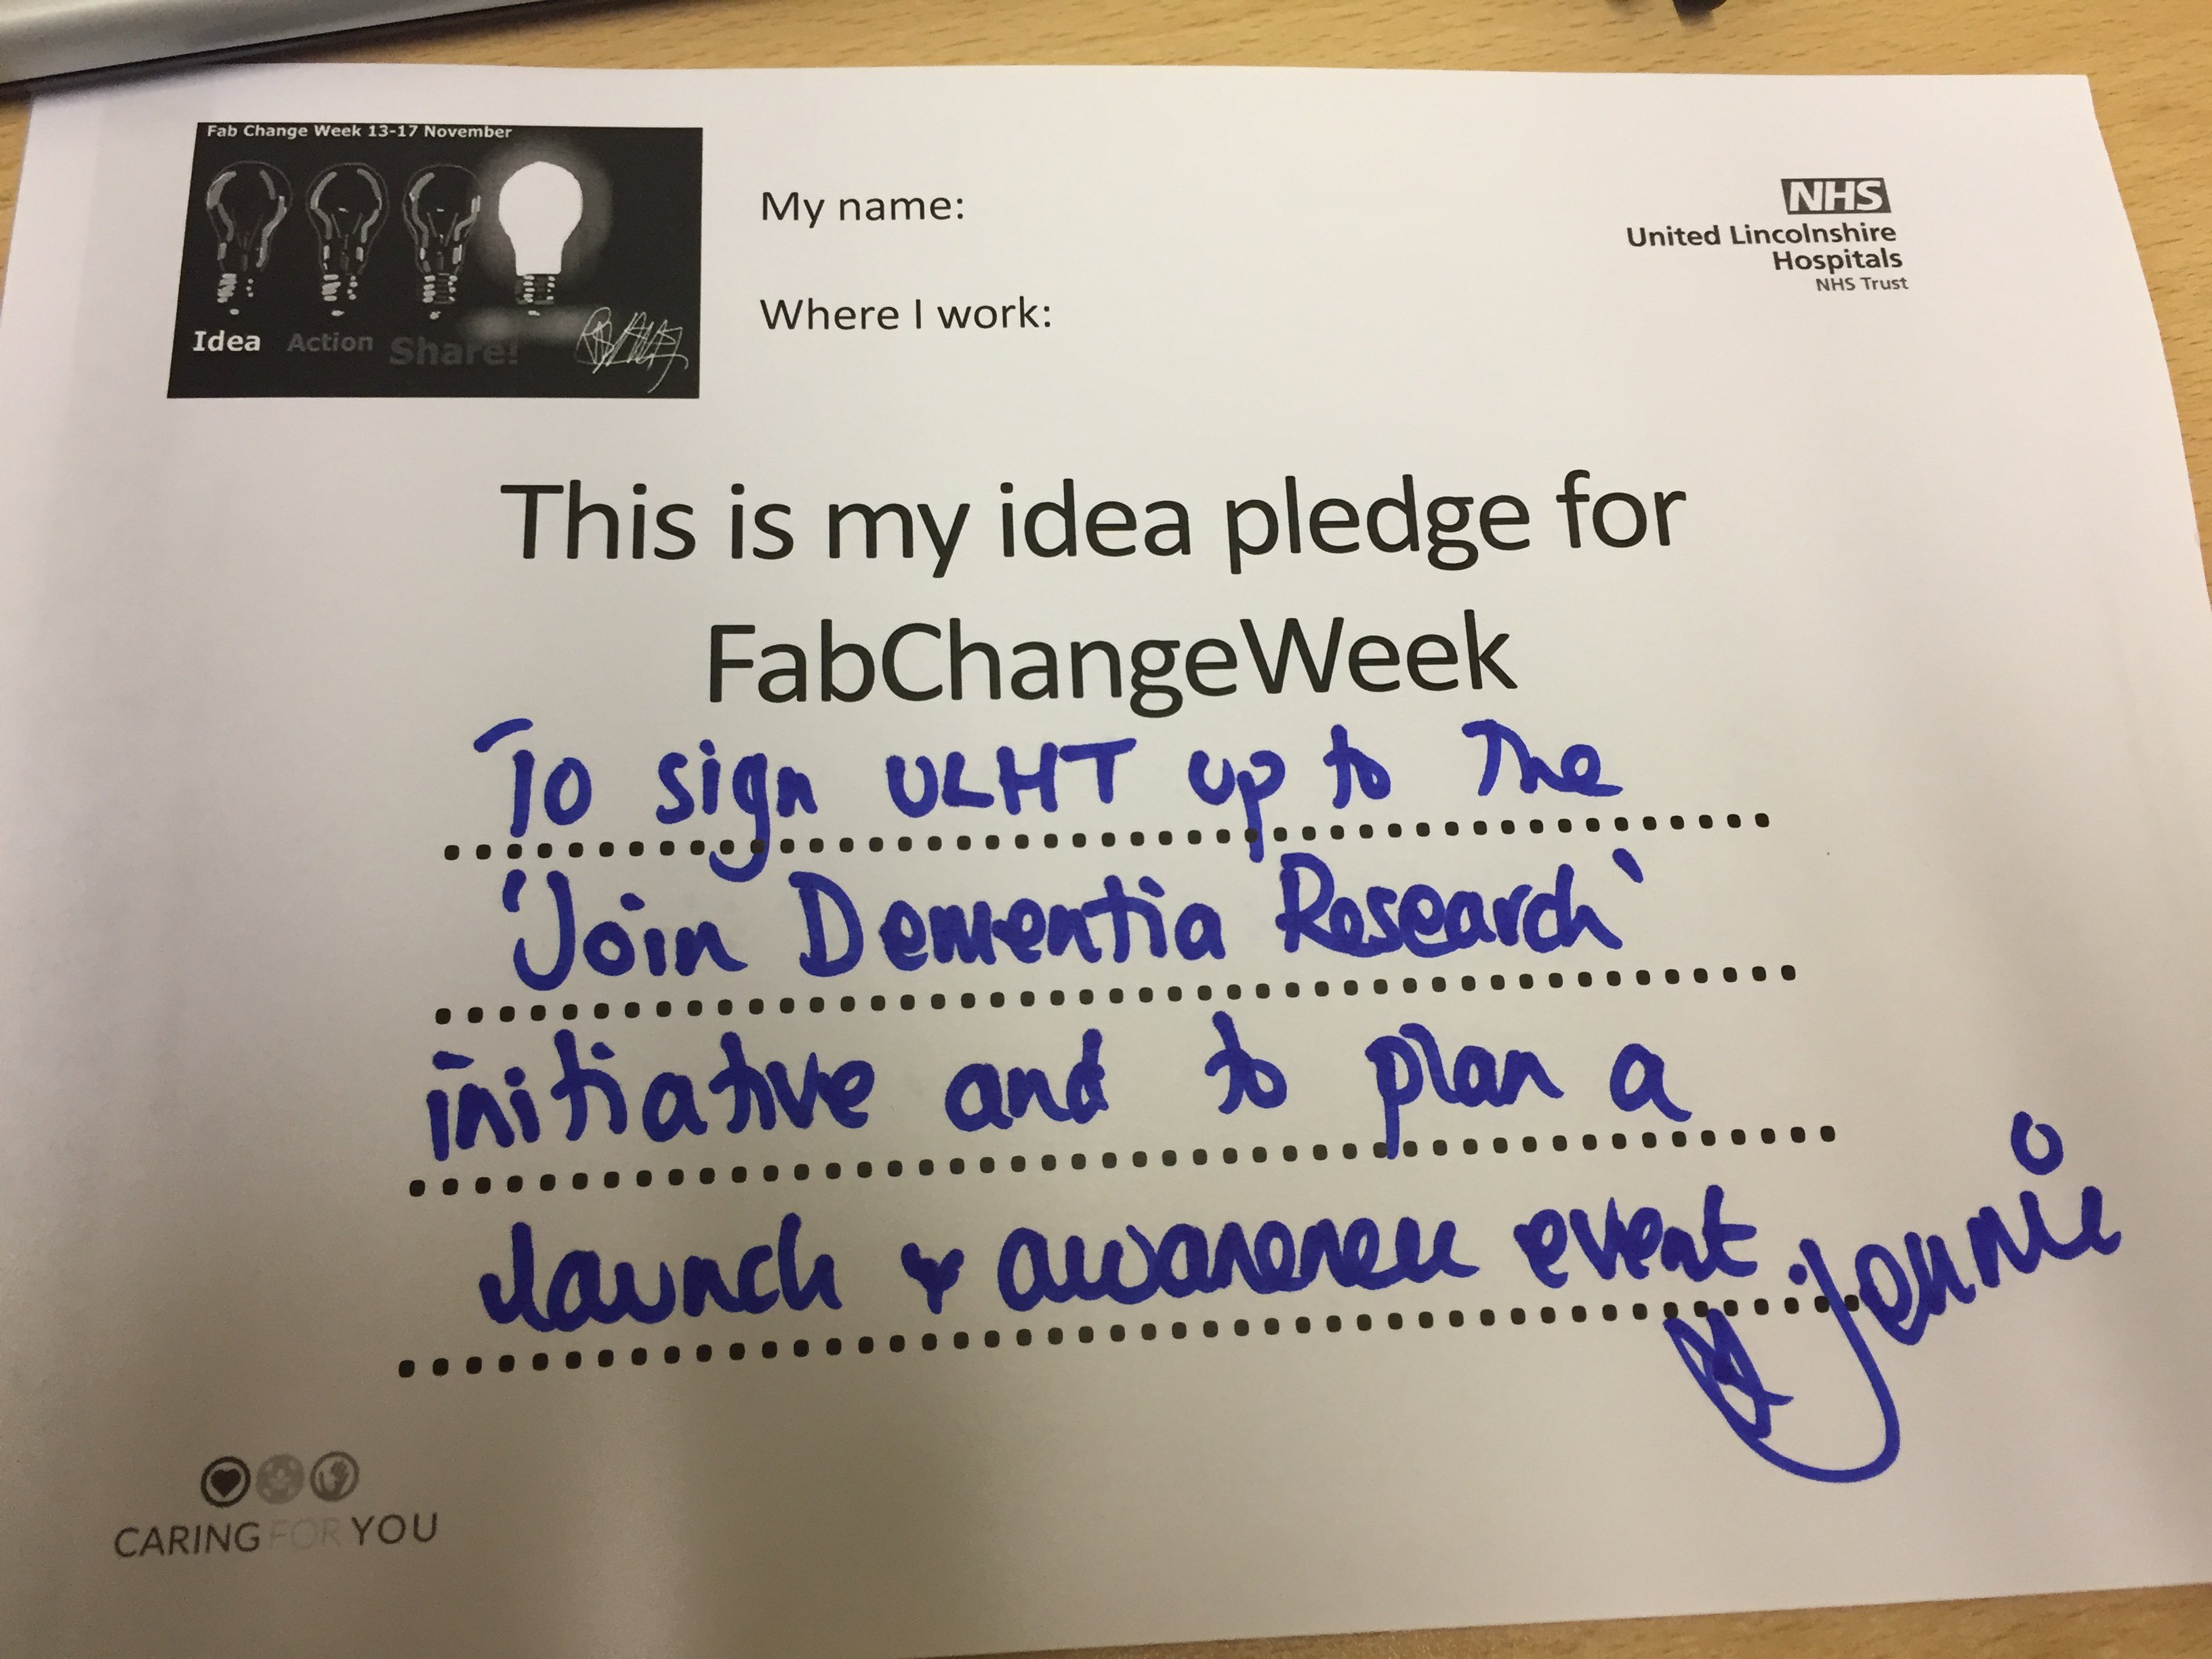 Fab Change Week 13-17 November
Idea Action Share!
My name:
Where I work:
NHS
United Lincolnshire
Hospitals
NHS Trust
This is my idea pledge for
FabChangeWeek
To sign ULHT up to The
'Join Dementia Research'
initiative and to plan a
launch & awareness event.
Jennie
CARING FOR YOU